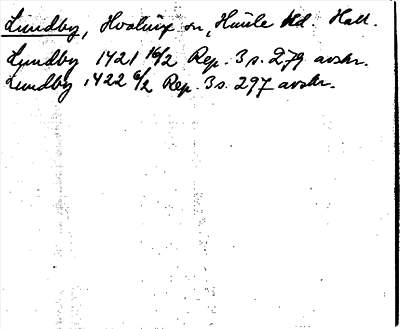 Lundby, Hvalinge sn, Himle hd. Hall.
Lundby 1421 16/2 Rep. 3 s. 279 avskr.
Lundby 1422 6/2 Rep. 3 s. 297 avskr.